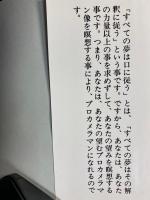 『すべての夢は口に従う』とは、『すべての夢はその解
釈に従う』という事です。ですから、あなたは、あなた
の力量以上の事を求めずして、あなたの望みを瞑想する
事です。つまり、あなたは、あなたの望むプロカメラマ
ン像を瞑想する事により、プロカメラマンになれるので
す。